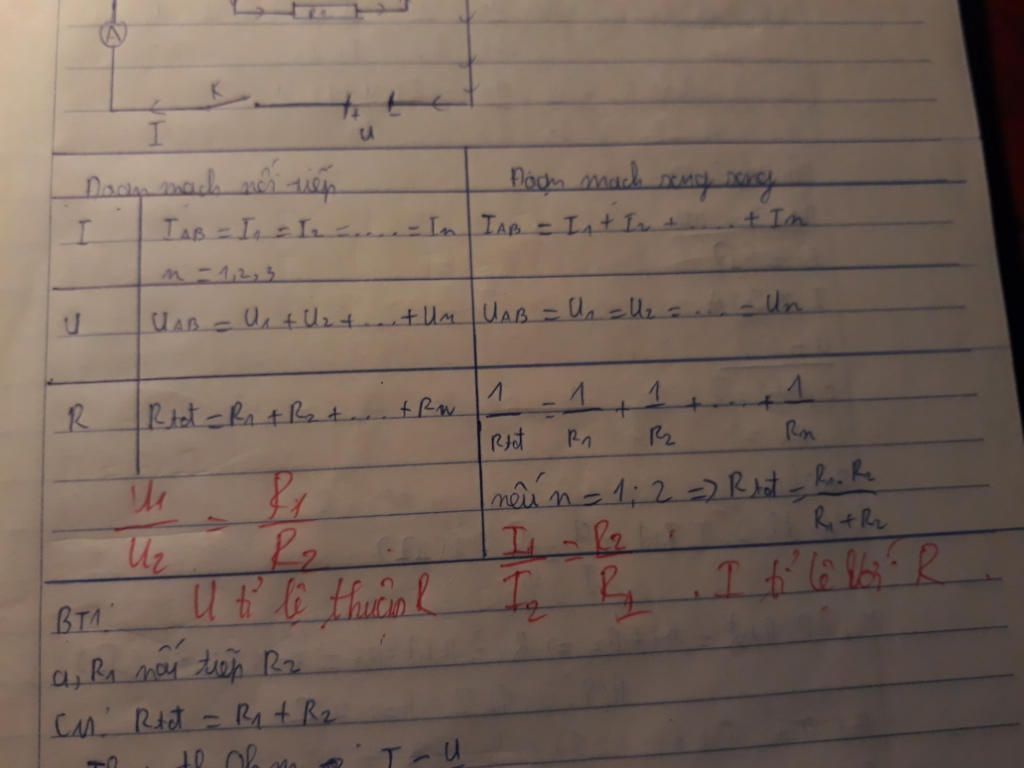 R2
A
K
I
U
Đoạn mạch nối tiếp
Đoạn mạch song song
I
IAB = I1 = I2 = ..... = In
n = 1,2,3
IAB = I1 + I2 + ..... + In
U
UAB = U1 + U2 + ... + Un
UAB = U1 = U2 = .... = Un
R
Rtđt = R1 + R2 + .... + Rn
1/Rtđt = 1/R1 + 1/R2 + .... + 1/Rn
nếu n = 1; 2 => Rtđt = R1.R2/R1+R2
U1/U2 = R1/R2
I1/I2 = R2/R1 .
U tỉ lệ thuận R
I tỉ lệ với R .
BT1:
a, R1 nối tiếp R2
CM: Rtđt = R1 + R2
I = U